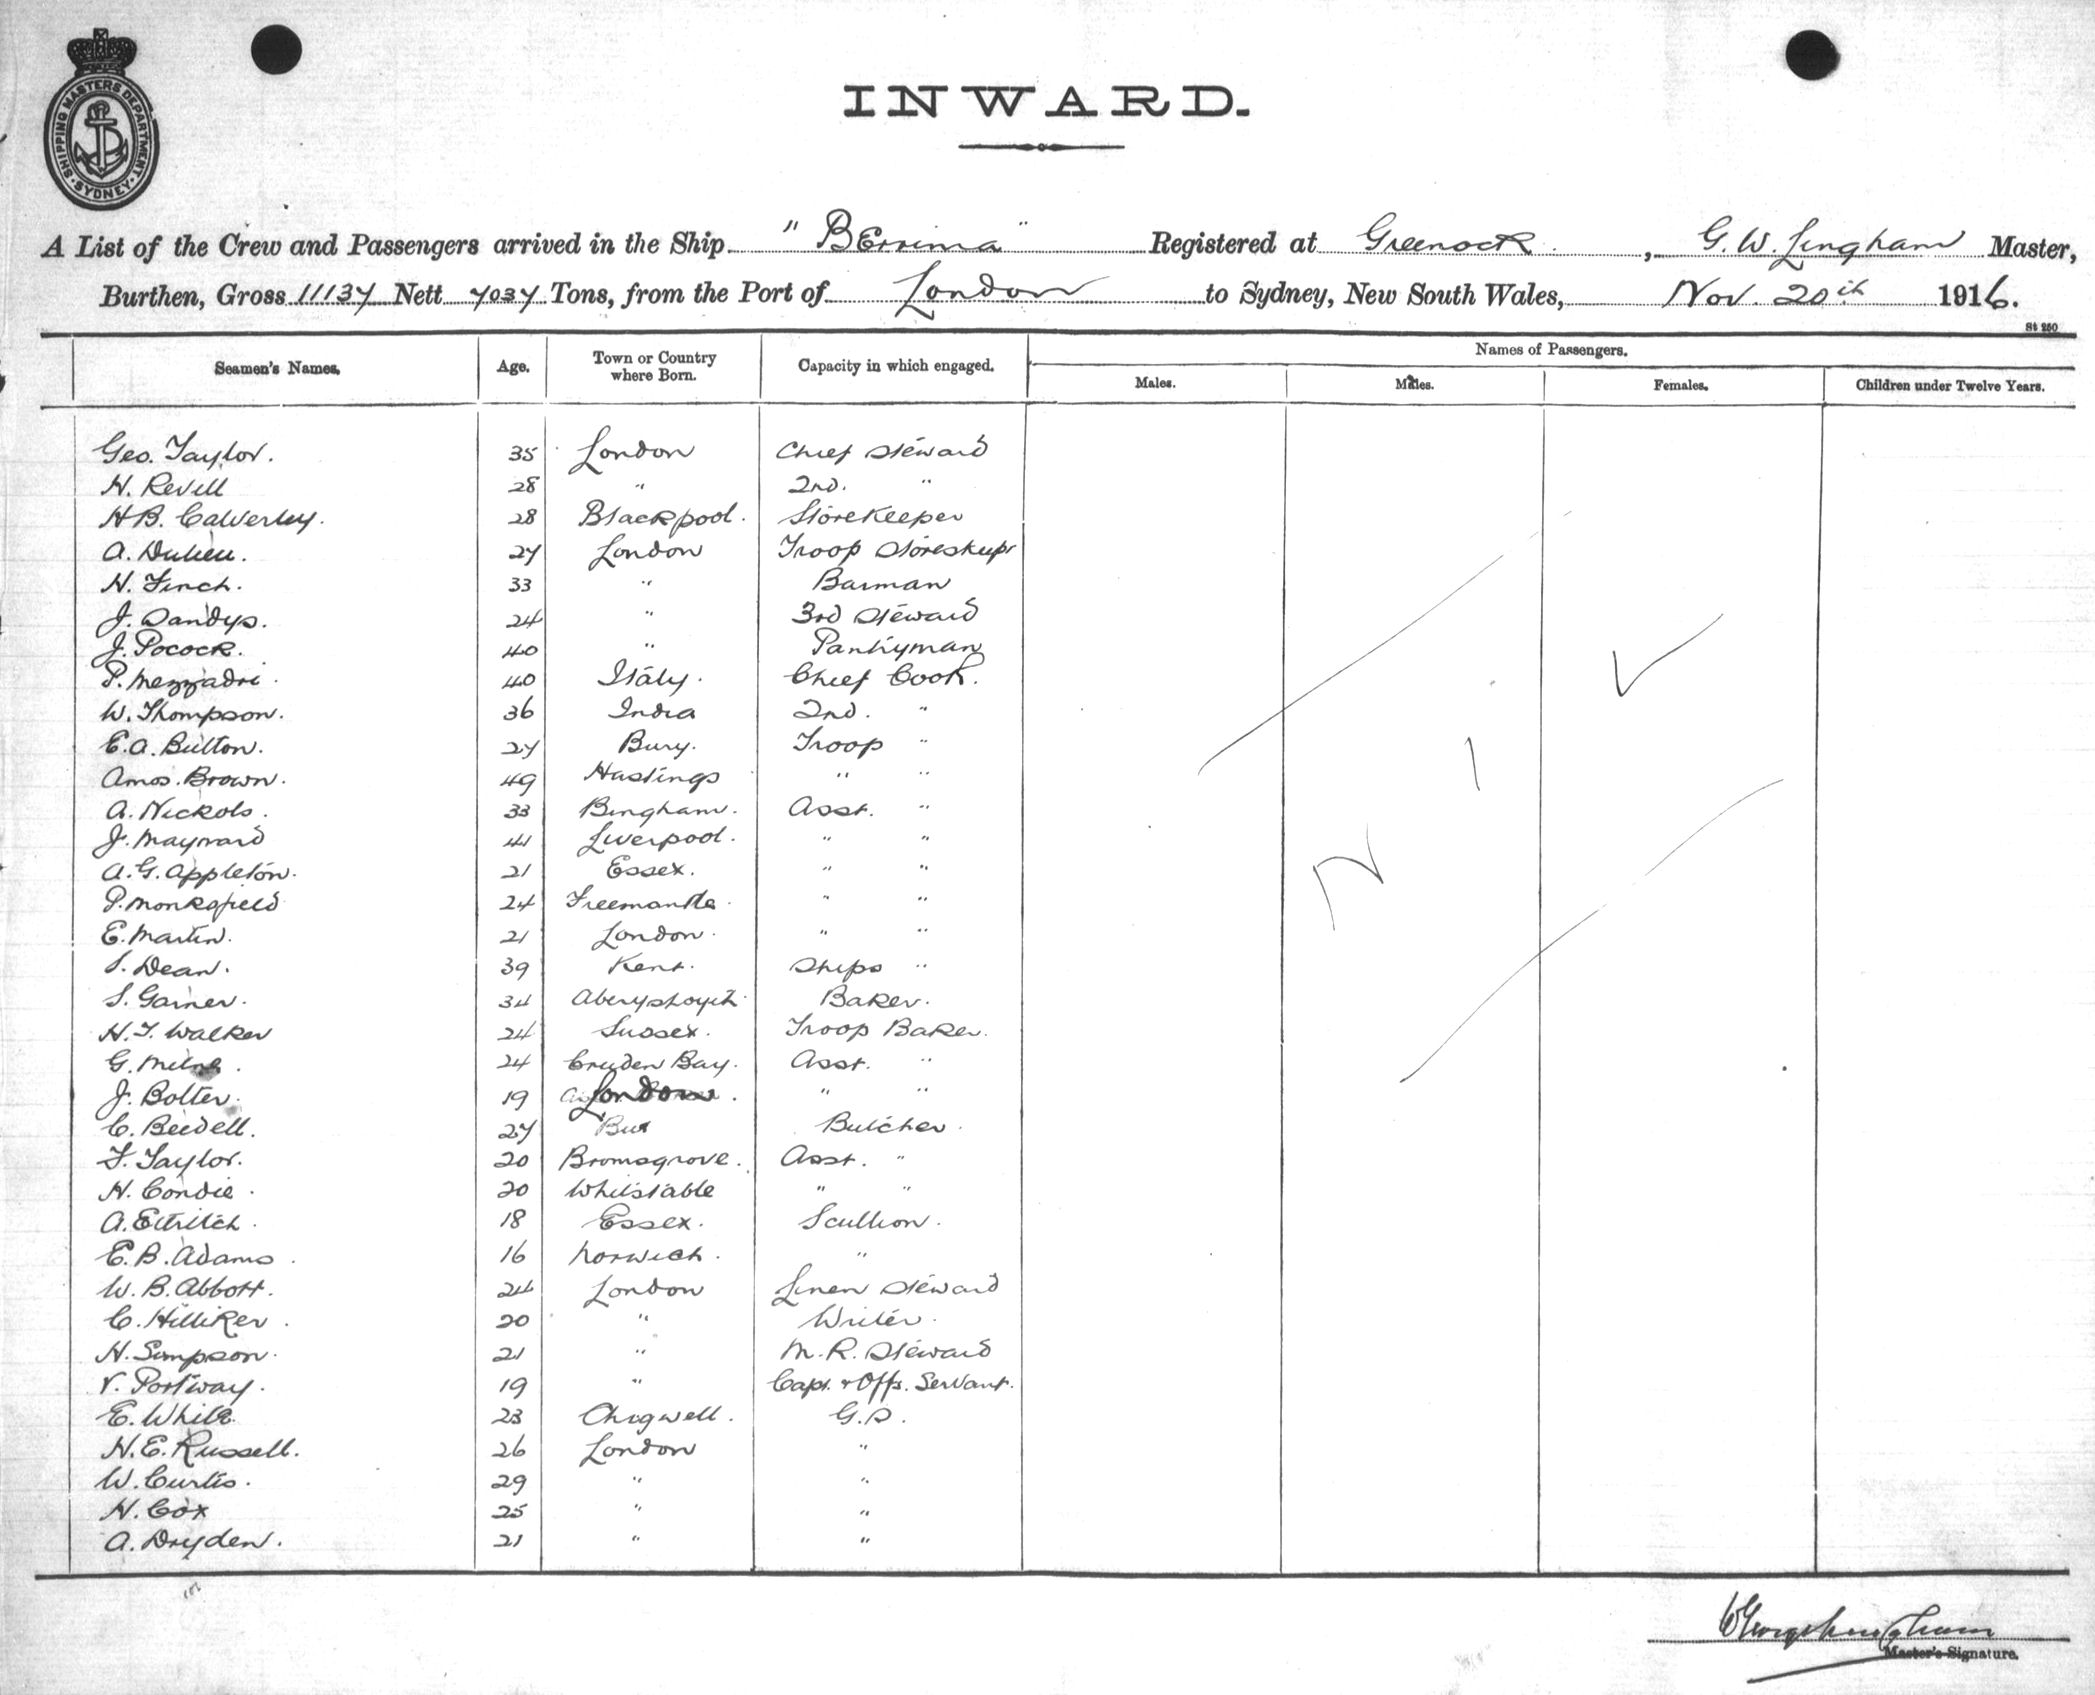 SHIPPING MASTERS DEPARTMENT · SYDNEY ·
INWARD.
A List of the Crew and Passengers arrived in the Ship "Berrima" Registered at Greenock, G. W. Lingham Master,
Burthen, Gross 11137 Nett 7037 Tons, from the Port of London to Sydney, New South Wales, Nov. 20th 1916.
St 250
Seamen's Names. Age. Town or Country where Born. Capacity in which engaged. Names of Passengers.
Males. Males. Females. Children under Twelve Years.
Geo. Taylor. 35 London Chief Steward
H. Revell 28 " 2nd. "
H B. Calverley. 28 Blackpool. Storekeeper
A. Dulieu. 27 London Troop Storeskupr
H. Finch. 33 " Barman
J. Sandys. 24 " 3rd Steward
J. Pocock. 40 " Pantryman
P. Mezzadri. 40 Italy. Chief Cook.
W. Thompson. 36 India 2nd. "
E. A. Bulton. 27 Bury. Troop "
Amos. Brown. 49 Hastings " "
A. Nickols. 33 Bingham. Asst. "
J. Maynard 41 Liverpool. " "
A. G. Appleton. 21 Essex. " "
P. Monksfield 24 Freemantle. " "
E. Martin. 21 London. " "
S. Dean. 39 Kent. Ships "
S. Garner. 34 Aberystwyth. Baker.
H. T. Walker 24 Sussex. Troop Baker.
G. Milne. 24 Cruden Bay. Asst. "
J. Bolter. 19 London. " "
C. Beedell. 27 Butcher.
F. Taylor. 20 Bromsgrove. Asst. "
H. Condie. 20 Whitstable " "
A. Ettritch. 18 Essex. Scullion.
E. B. Adams. 16 Norwich. "
W. B. Abbott. 24 London Linen Steward
C. Hilliker. 20 " Writer.
H. Simpson. 21 " M. R. Steward
V. Portway. 19 " Capt. & Offs. Servant.
E. White. 23 Chigwell. G.S.
H. E. Russell. 26 London "
W. Curtis. 29 " "
H. Cox 25 " "
A. Dryden. 21 " "
N I L
Master's Signature.